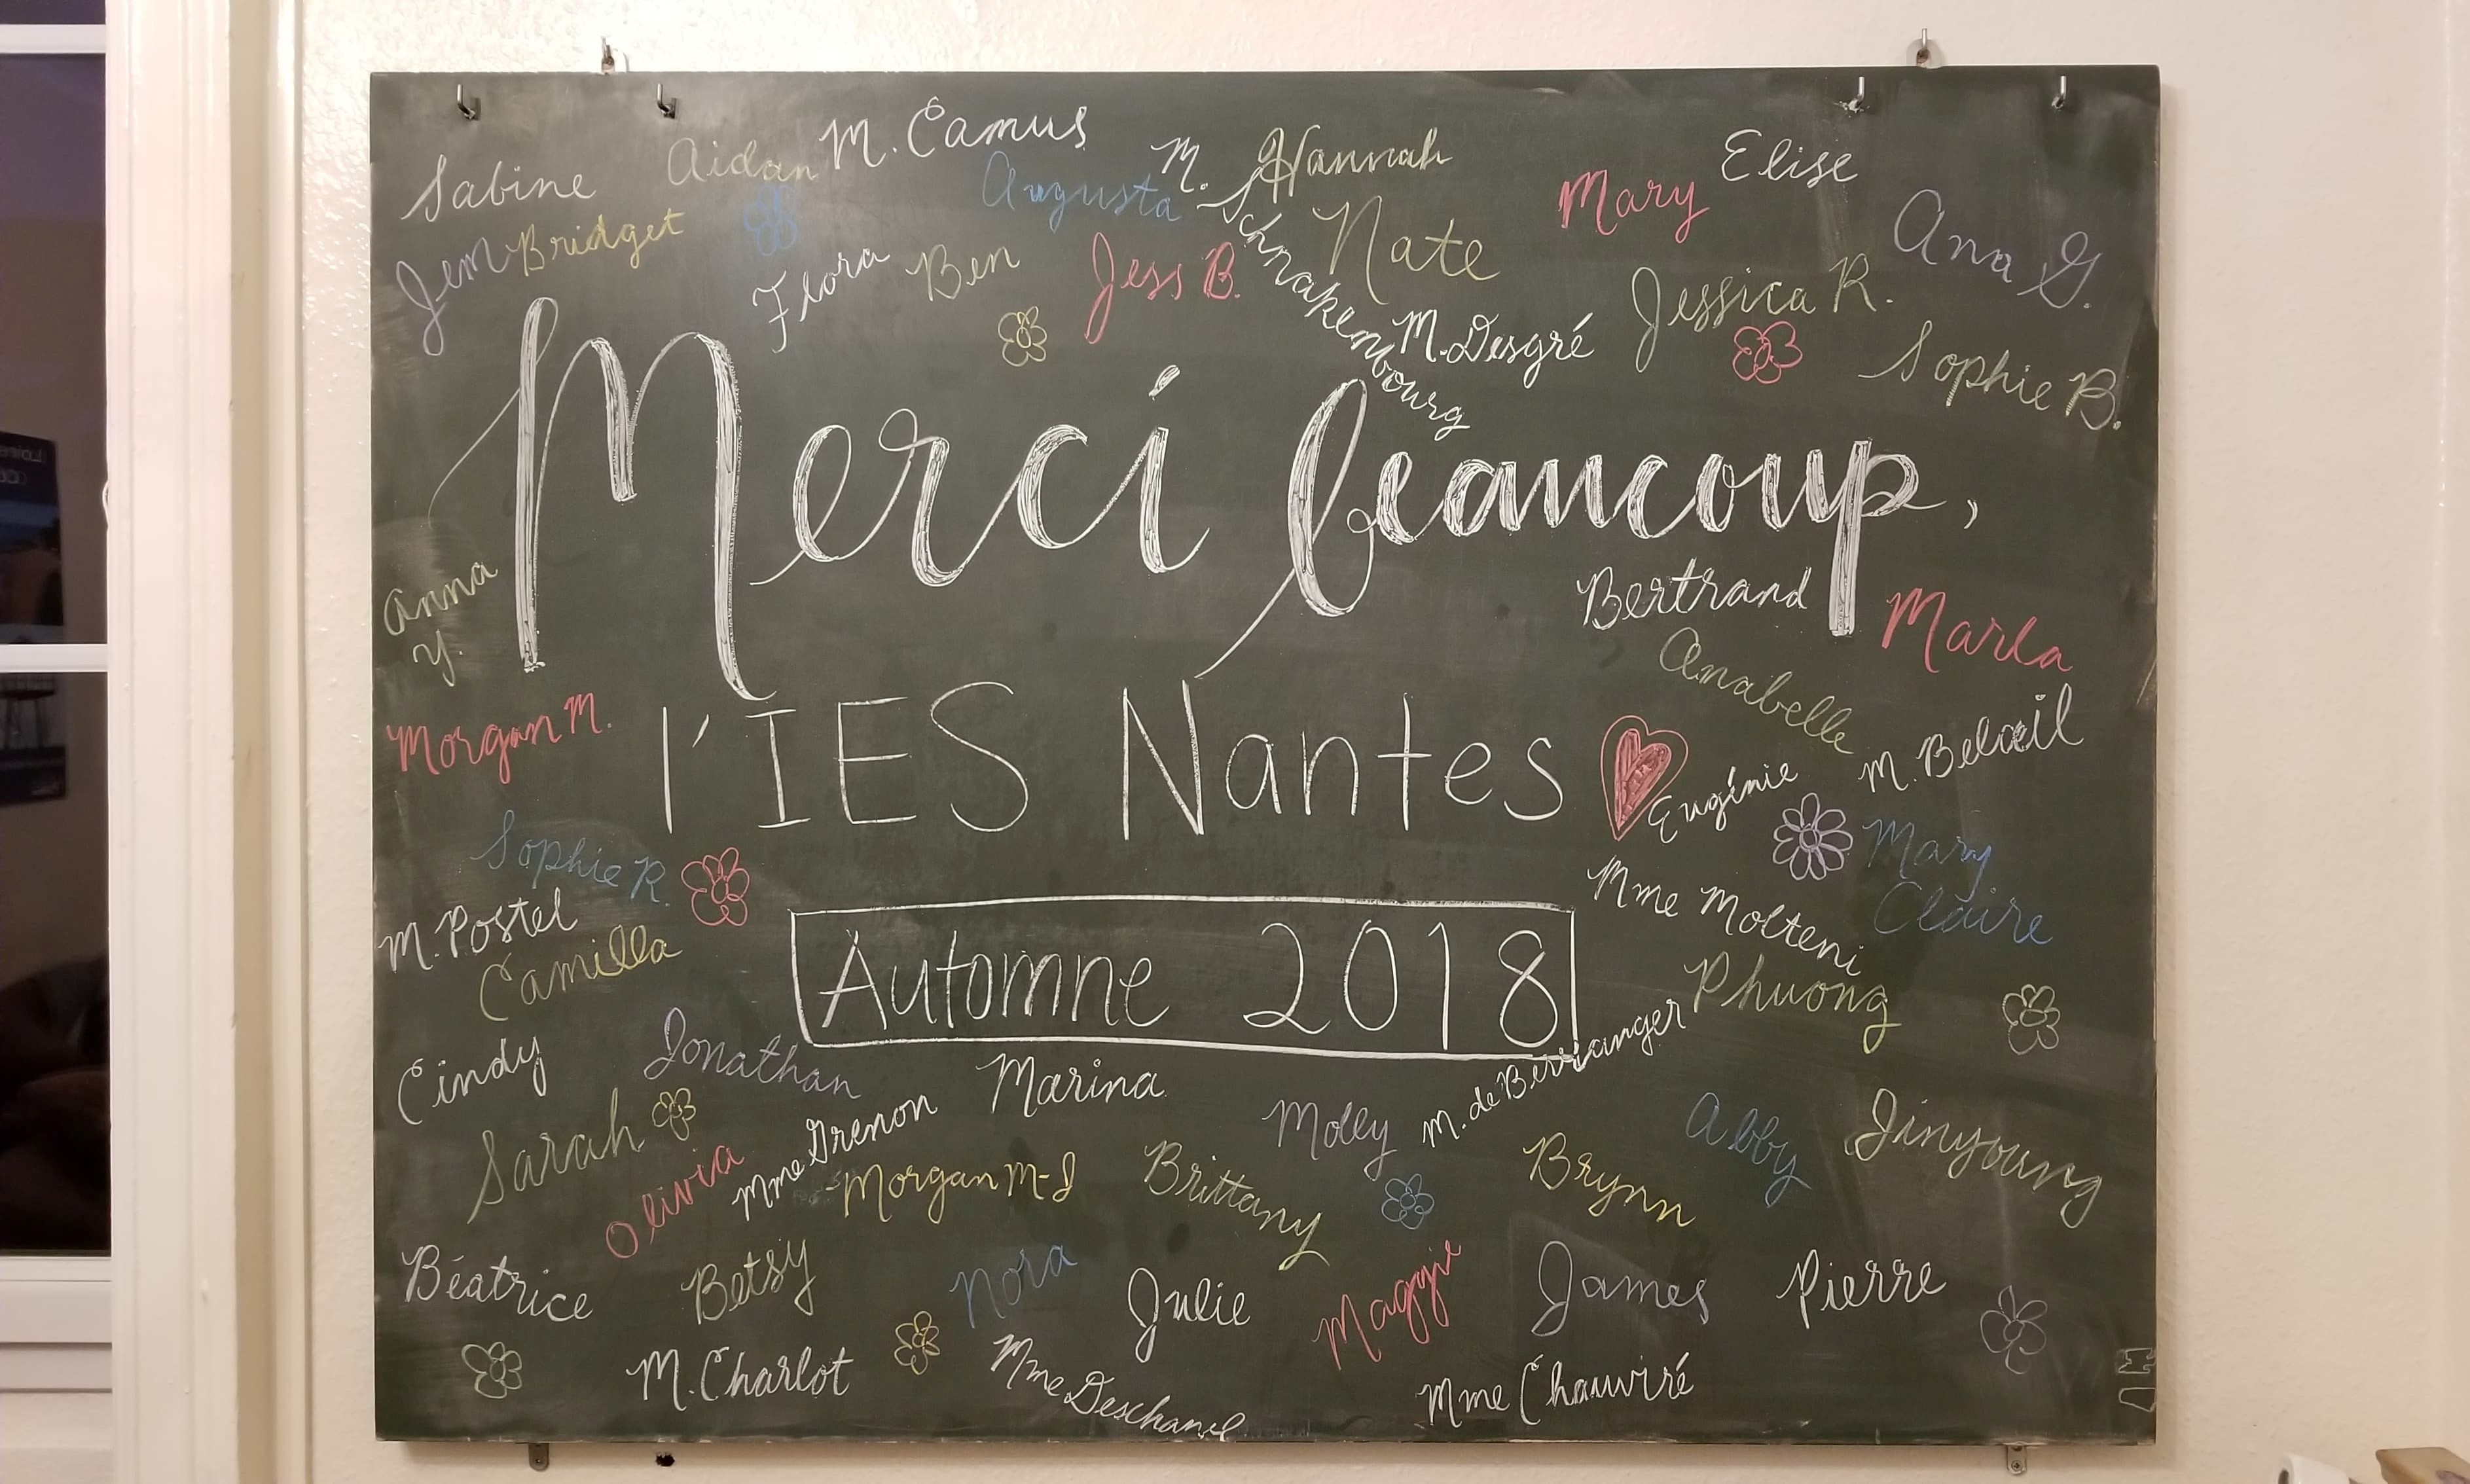 Sabine
Aidan
M. Camus
Augusta
M. Schnakenbourg
Hannah
Mary
Elise
Ana G.
Jem
Bridget
Flora
Ben
Jess B.
Nate
M. Desgré
Jessica R.
Sophie B.
Merci beaucoup,
Anna
Y.
Bertrand
Marla
Anabelle
Morgan M.
l'IES Nantes
Eugénie
M. Belœil
Sophie R.
Mary
Claire
M. Postel
Mme Molteni
Camilla
Automne 2018
Phuong
Cindy
Jonathan
Marina
M. de Berranger
Sarah
Olivia
Mme Grenon
Morgan M-J
Brittany
Molly
Brynn
Abby
Jinyoung
Béatrice
Betsy
Nora
Julie
Maggie
James
Pierre
M. Charlot
Mme Deschanel
Mme Chauviré